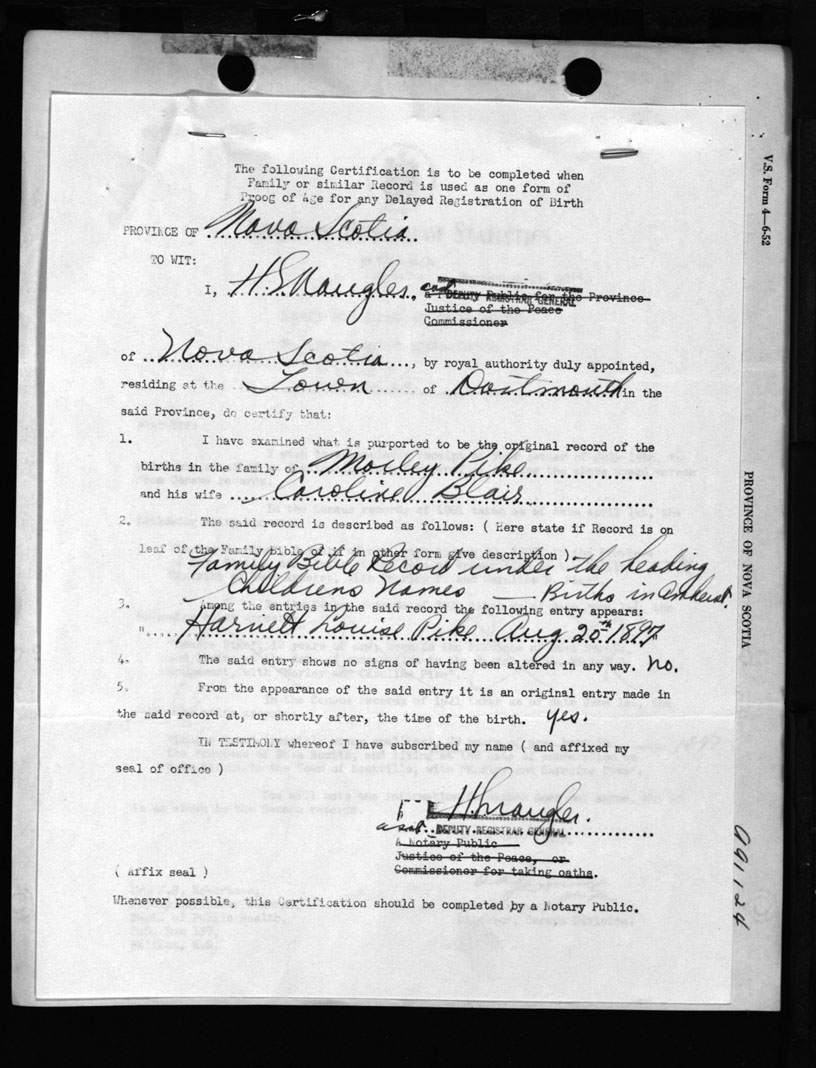 The following Certification is to be completed when
Family or similar Record is used as one form of
Proog of Age for any Delayed Registration of Birth
PROVINCE OF Nova Scotia
TO WIT:
I, asst
DEPUTY REGISTRAR GENERAL
a Public for the Province
Justice of the Peace
Commissioner
of Nova Scotia, by royal authority duly appointed,
residing at the Town of Dartmouth in the
said Province, do certify that:
1. I have examined what is purported to be the original record of the
births in the family of Morley Pike
and his wife Caroline Blair
2. The said record is described as follows: ( Here state if Record is on
leaf of the Family Bible or if in other form give description ).
Family Bible Record under the heading
Childrens Names — Births in Amherst.
3. Among the entries in the said record the following entry appears:
"..... Harriett Louise Pike Aug 20th 1897
4. The said entry shows no signs of having been altered in any way. No.
5. From the appearance of the said entry it is an original entry made in
the said record at, or shortly after, the time of the birth. yes.
IN TESTIMONY whereof I have subscribed my name ( and affixed my
seal of office )
asst. DEPUTY REGISTRAR GENERAL
A Notary Public
Justice of the Peace, or
Commissioner for taking oaths.
( Affix seal )
Whenever possible, this Certification should be completed by a Notary Public.
V.S. Form 4—6-52
PROVINCE OF NOVA SCOTIA
991124